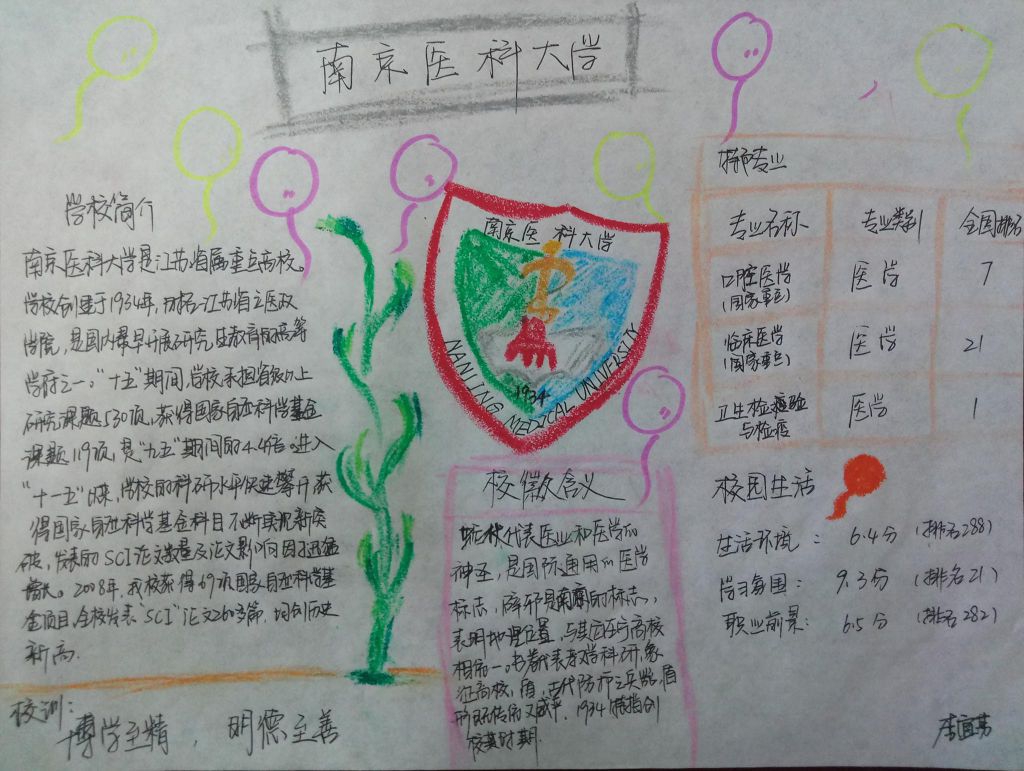 南京医科大学
学校简介
南京医科大学是江苏省属重点高校。
学校创建于1934年,前名江苏省立医政
学院,是国内最早开展研究生教育的高等
学府之一。"十五"期间,学校承担省级以上
研究课题530项,获得国家自然科学基金
课题119项,是"九五"期间的4.4倍。进入
"十一五"以来,学校的科研水平快速攀升,获
得国家自然科学基金科目不断实现新突
破,发表的SCI论文数量及论文影响因子迅猛
增长。2008年,我校获得69项国家自然科学基
金项目,全校发表"SCI"论文260多篇,均创历史
新高.
校训:
博学至精,明德至善
南京医科大学
1934
NANJING MEDICAL UNIVERSITY
校徽含义
蛇杖代表医业和医学的
神圣,是国际通用的医学
标志,辟邪是南京的标志,
表明地理位置,与其它医学高校
相区一。书卷代表教学科研,象
征高校,盾,古代防御之兵器,盾
形既传府又威严.1934樟指创
校其时期.
推荐专业
专业名称 专业类别 全国排名
口腔医学 医学 7
(国家重点)
临床医学 医学 21
(国家重点)
卫生检验 医学 1
与检疫
校园生活
生活环境: 6.4分 (排名288)
学习氛围: 9.3分 (排名21)
职业前景: 6.5分 (排名282)